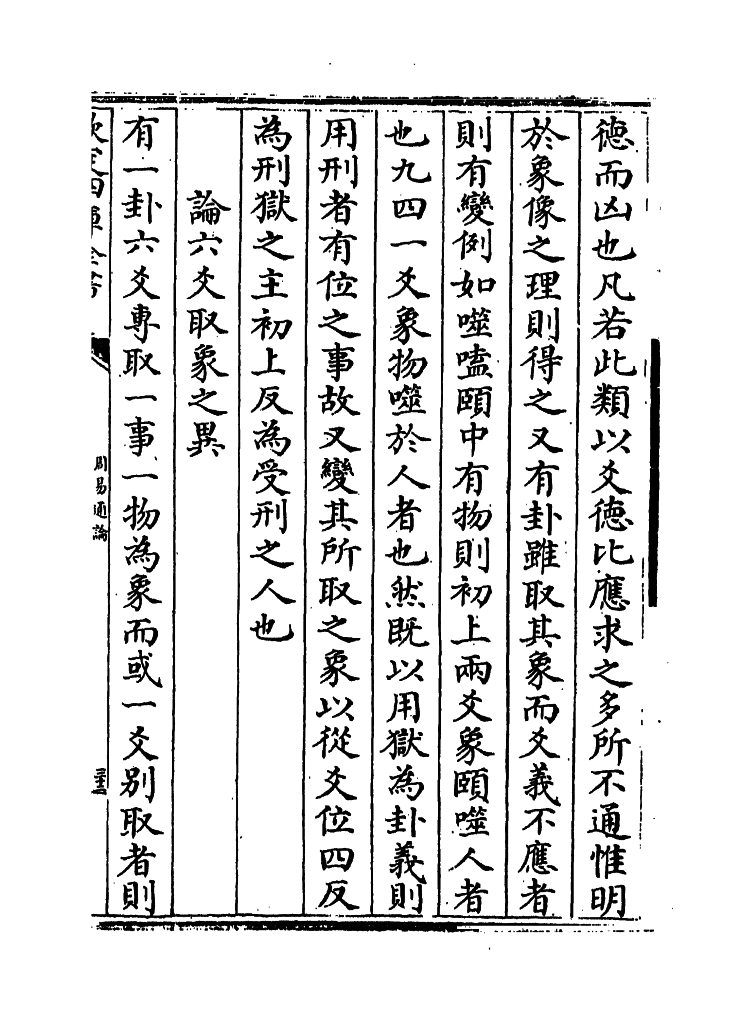 德而凶也凡若此類以爻德比應求之多所不通惟明
於象像之理則得之又有卦雖取其象而爻義不應者
則有變例如噬嗑頤中有物則初上兩爻象頤噬人者
也九四一爻象物噬於人者也然既以用獄為卦義則
用刑者有位之事故又變其所取之象以從爻位四反
為刑獄之主初上反為受刑之人也
論六爻取象之異
有一卦六爻專取一事一物為象而或一爻别取者則
周易通論